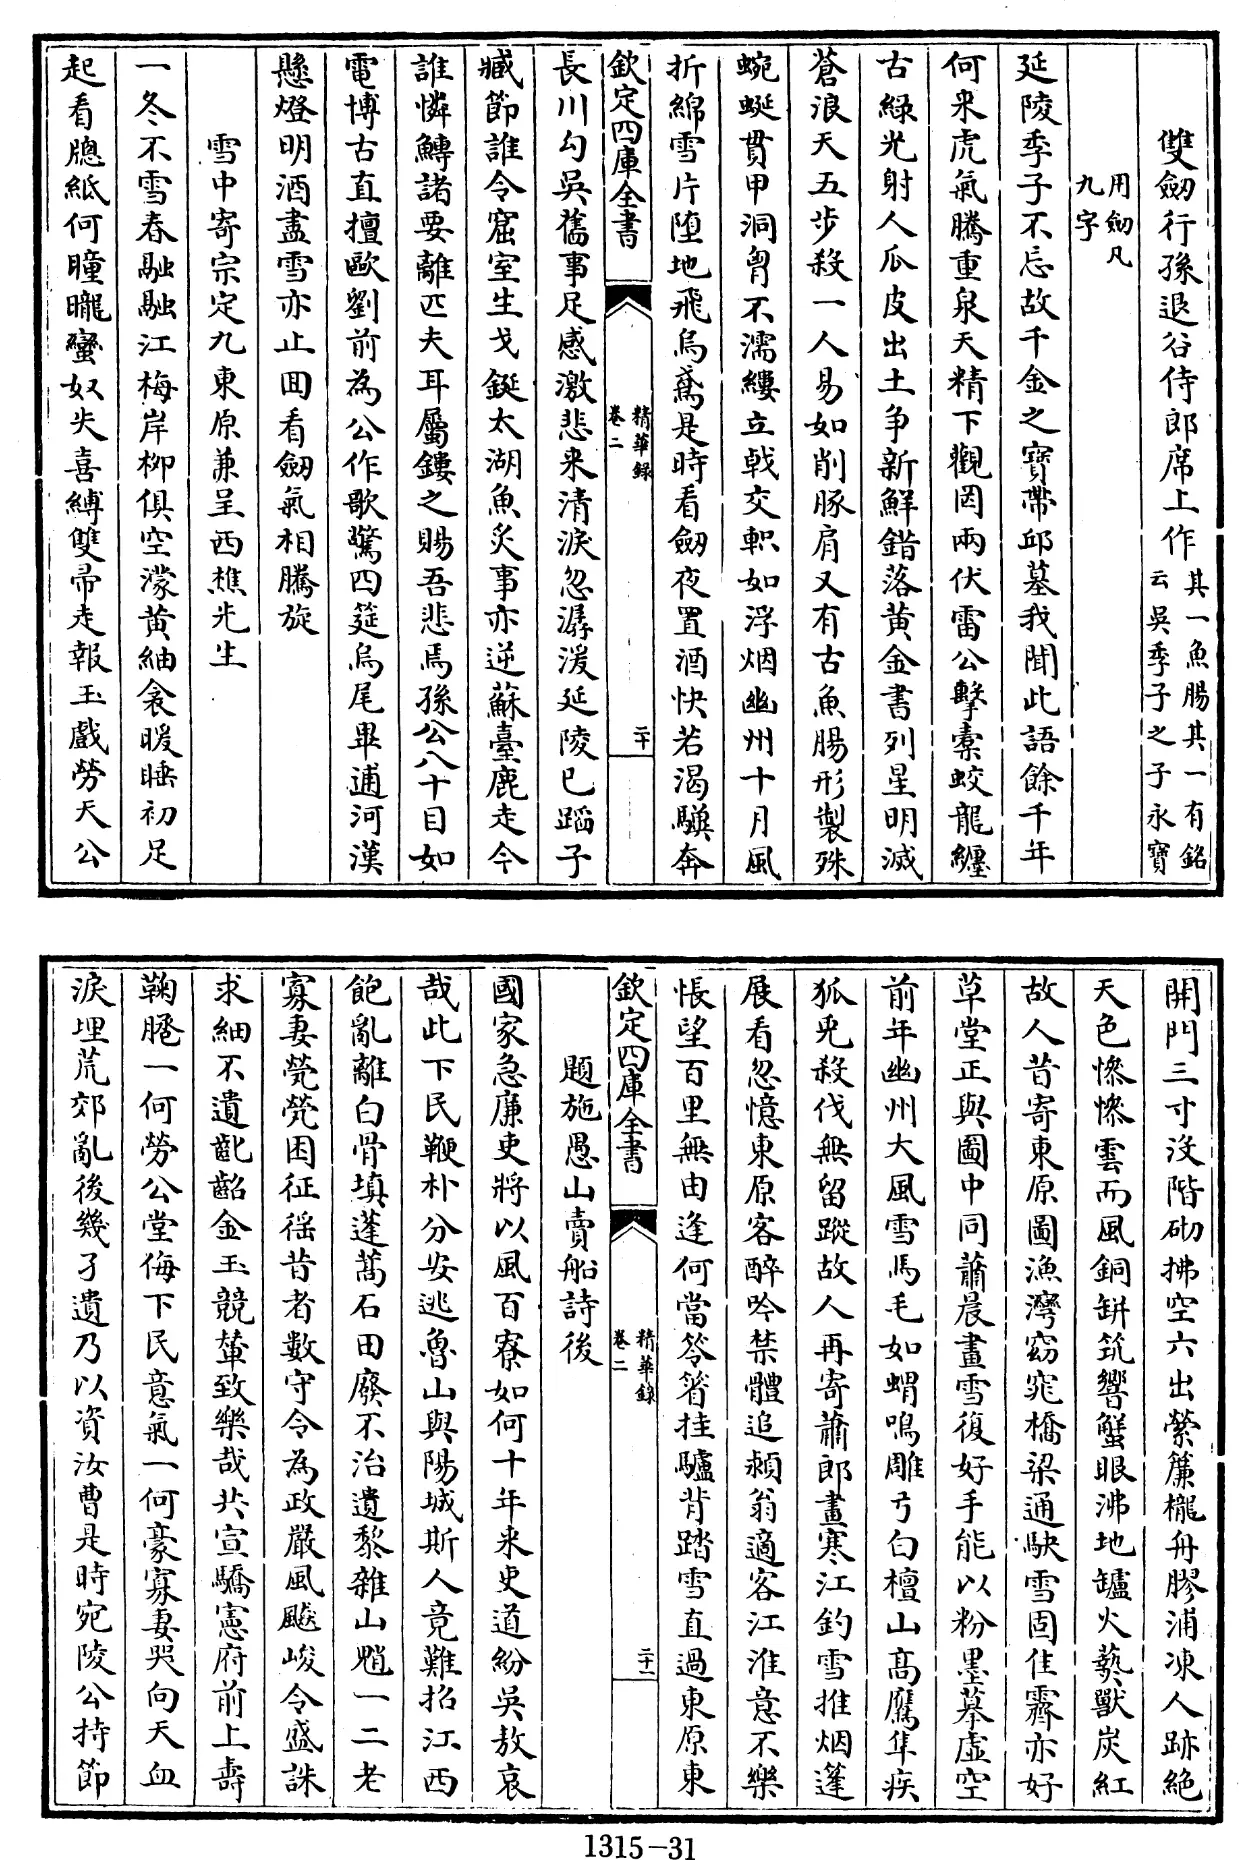 雙劒行孫退谷侍郎席上作其一魚腸其一有銘
云吳季子之子永寶
用劒凡
九字
延陵季子不忘故千金之寶帶邱墓我聞此語餘千年
何來虎氣騰重泉天精下觀罔兩伏雷公擊橐蛟龍纏
古綠光射人瓜皮出土爭新鮮錯落黄金書列星明滅
蒼浪天五步殺一人易如削豚肩又有古魚腸形製殊
蜿蜒貫甲洞胷不濡縷立戟交軹如浮烟幽州十月風
折綿雪片墮地飛烏鳶是時看劒夜置酒快若渴驥奔
欽定四庫全書
精華録
卷二
二十
長川勾吳舊事足感激悲來清淚忽潺湲延陵已蹈子
臧節誰令窟室生戈鋋太湖魚炙事亦逆蘇臺鹿走今
誰憐鱄諸要離匹夫耳屬鏤之賜吾悲焉孫公八十目如
電博古直擅歐劉前為公作歌驚四筵烏尾畢逋河漢
懸燈明酒盡雪亦止回看劒氣相騰旋
雪中寄宗定九東原兼呈西樵先生
一冬不雪春融融江梅岸柳俱空濛黄紬衾暖睡初足
起看牕紙何曈曨蠻奴失喜縛雙帚走報玉戲勞天公
開門三寸沒階砌拂空六出縈簾櫳舟膠浦凍人跡絶
天色慘慘雲而風銅缾筑響蟹眼沸地罏火爇獸炭紅
故人昔寄東原圖漁灣窈窕橋梁通缺雪固佳霽亦好
草堂正與圖中同蕭晨畫雪復好手能以粉墨摹虚空
前年幽州大風雪馬毛如蝟鳴雕弓白檀山高鷹隼疾
狐兎殺伐無留蹤故人再寄蕭郎畫寒江釣雪推烟蓬
展看忽憶東原客醉吟禁體追潁翁適客江淮意不樂
悵望百里無由逢何當笭箵挂驢背踏雪直過東原東
欽定四庫全書
精華録
卷二
二十一
題施愚山賣船詩後
國家急廉吏將以風百寮如何十年來吏道紛吳敖哀
哉此下民鞭朴分安逃魯山與陽城斯人竟難招江西
飽亂離白骨填蓬蒿石田廢不治遺黎雜山魈一二老
寡妻煢煢困征徭昔者數守令為政嚴風飈峻令盛誅
求細不遺齔齠金玉競輦致樂哉共宣驕憲府前上壽
鞠跽一何勞公堂侮下民意氣一何豪寡妻哭向天血
淚埋荒郊亂後幾孑遺乃以資汝曹是時宛陵公持節
1315-31